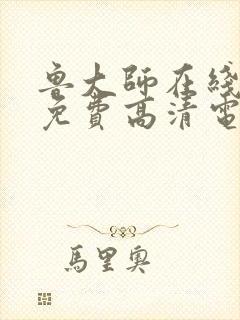 鲁大师在线
免费高清電
馬里奥